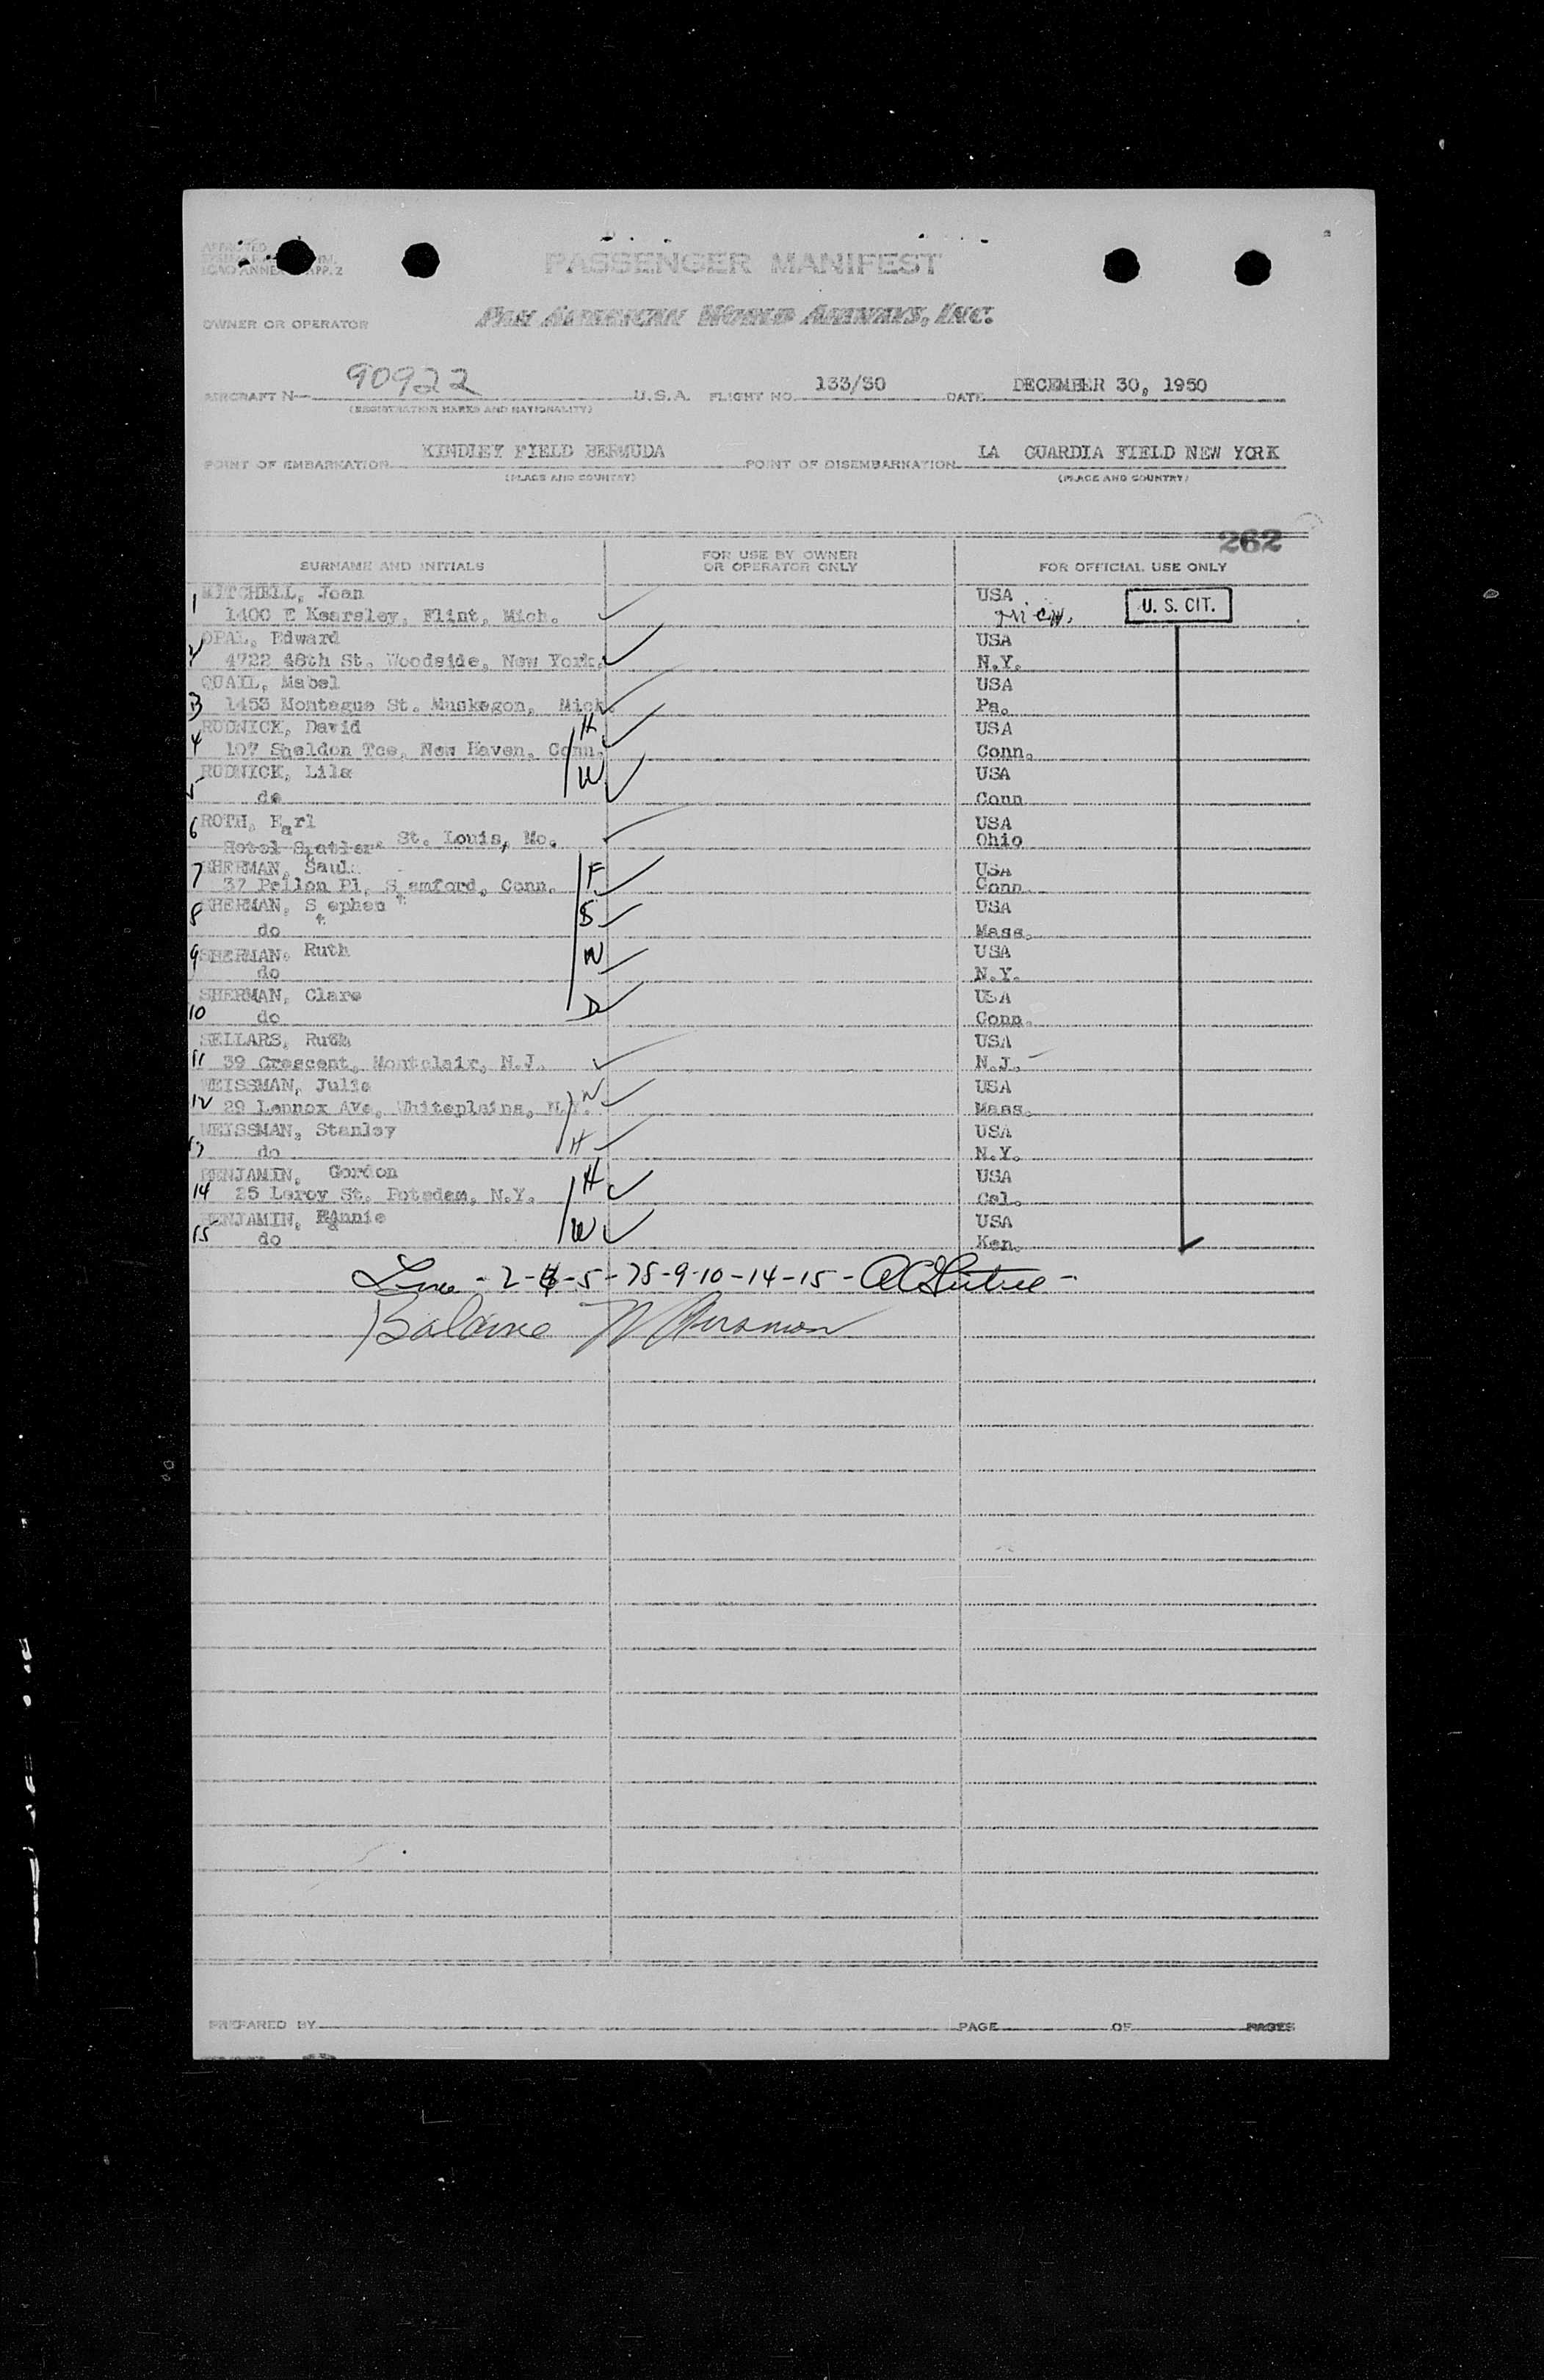 APPROVED
ICAO ANNEX APP. 2
PASSENGER MANIFEST
OWNER OR OPERATOR PAN AMERICAN WORLD AIRWAYS, INC.
AIRCRAFT N— 90922 U.S.A. FLIGHT NO. 133/30 DATE DECEMBER 30, 1950
(REGISTRATION MARKS AND NATIONALITY)
POINT OF EMBARKATION KINDLEY FIELD BERMUDA POINT OF DISEMBARKATION LA GUARDIA FIELD NEW YORK
(PLACE AND COUNTRY) (PLACE AND COUNTRY)
262
SURNAME AND INITIALS FOR USE BY OWNER OR OPERATOR ONLY FOR OFFICIAL USE ONLY
MITCHELL, Joan USA
1 1400 E Kearsley, Flint, Mich. Mich. U. S. CIT.
OPAL, Edward USA
2 4722 48th St. Woodside, New York. N.Y.
QUAIL, Mabel USA
3 1453 Montague St. Muskegon, Mich. Pa.
RUDNICK, David H USA
4 107 Sheldon Tce, New Haven, Conn. Conn.
RUDNICK, Lila W USA
5 do Conn
6 ROTH, Earl USA
Hotel Statler. St. Louis, Mo. Ohio
7 SHERMAN, Saul F USA
37 Pellon Pl, Stamford, Conn. Conn.
8 SHERMAN, Stephen S USA
do Mass.
9 SHERMAN. Ruth W USA
do N.Y.
SHERMAN, Clare D USA
10 do Conn.
SELLARS, Ruth USA
11 39 Crescent, Montclair, N.J. N.J.
WEISSMAN, Julie W USA
12 29 Lennox Ave, Whiteplains, N.Y. Mass.
WEISSMAN, Stanley USA
13 do H N.Y.
BENJAMIN, Gordon H USA
14 25 Leroy St. Potsdam, N.Y. Cal.
BENJAMIN, Fannie USA
15 do W Ken.
Line - 2-4-5-78-9-10-14-15-
Balance
PREPARED BY PAGE OF PAGES